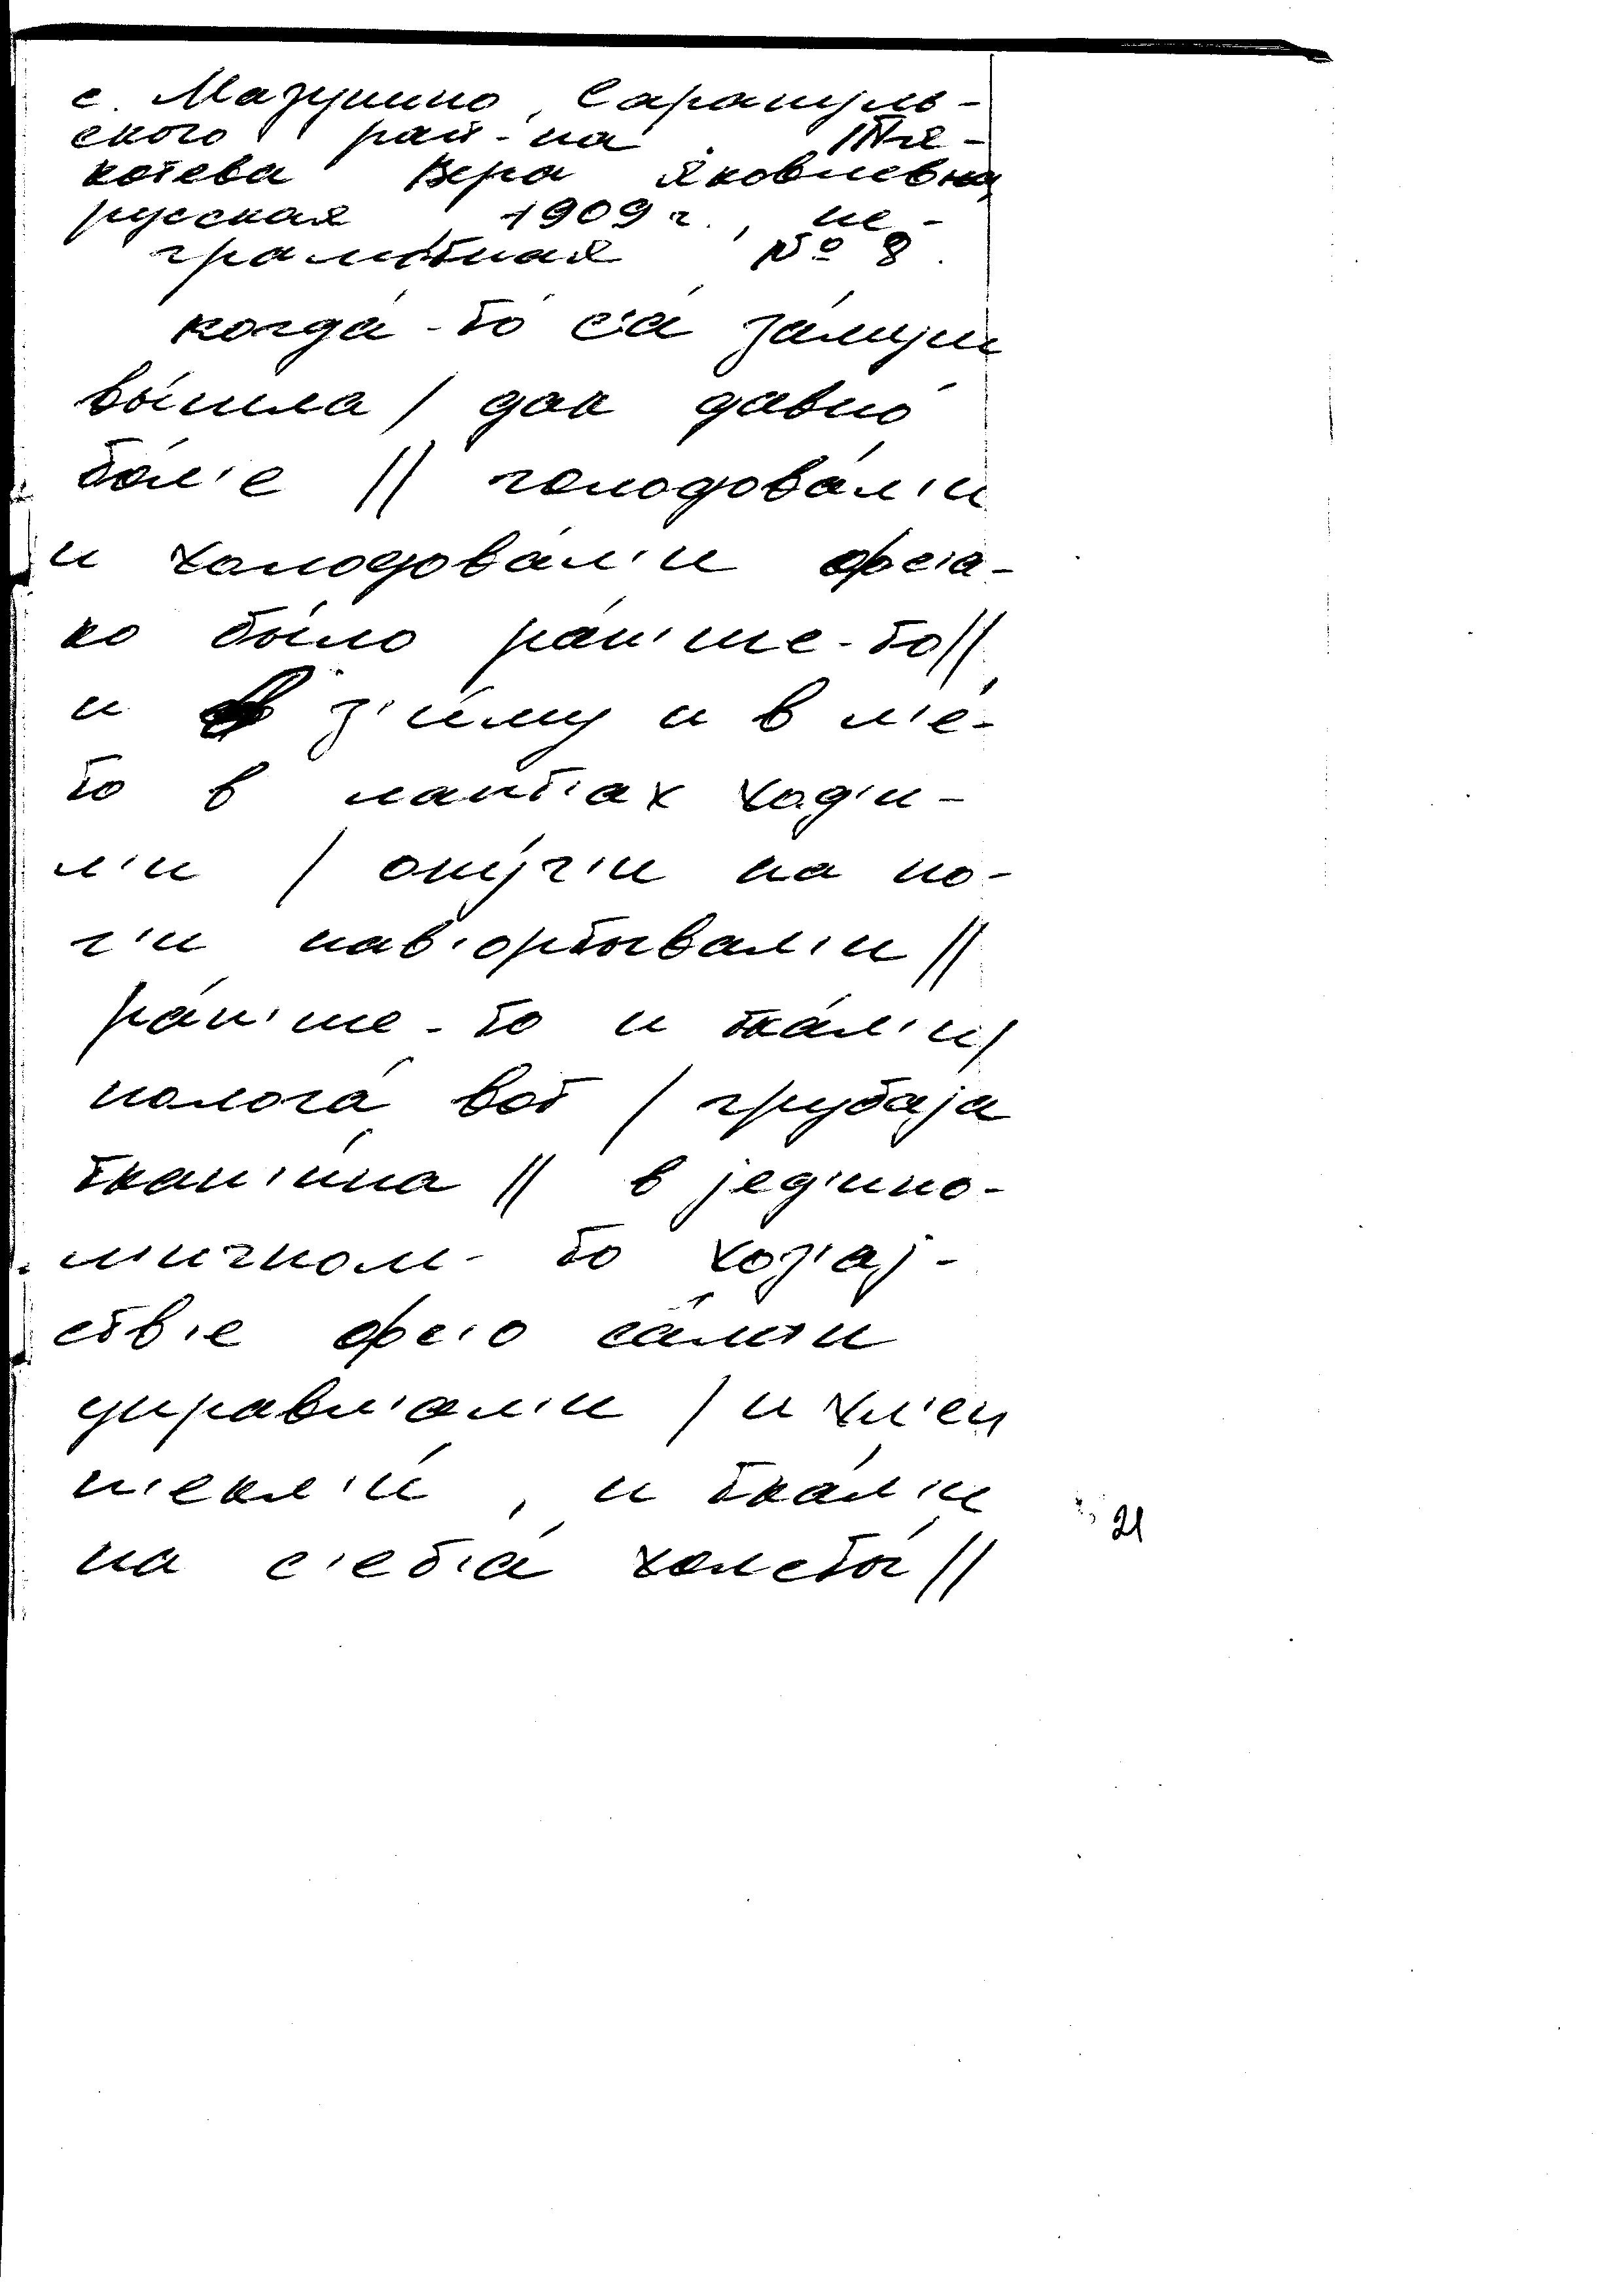 с. Мазунино, Сарапуль-
ского рай-на. Пля-
котева Вера Яковлевна,
русская 1909 г., не-
грамотная № 8.
когда́-то с'а́ за́муш
вы́шла / дак давно́
бо́л'е // голодова́л'и
и холодова́л'и фс'а-
ко бы́ло ра́н'ше-то //
и в з'и́му и в л'е́-
то в лапт'ах ход'и-
л'и / ону́ч'и на но-
г'и нав'ортывал'и //
ра́н'ше-то и тка́л'и /
полога́ вот / грубаја
ткан'и́на // в јед'ино-
л'ичном-то хоз'ај-
ств'е фс'о са́м'и
управл'ал'и / и хл'еп
п'екл'и́, и тка́л'и
на с'еб'а́ холсты́ //
21